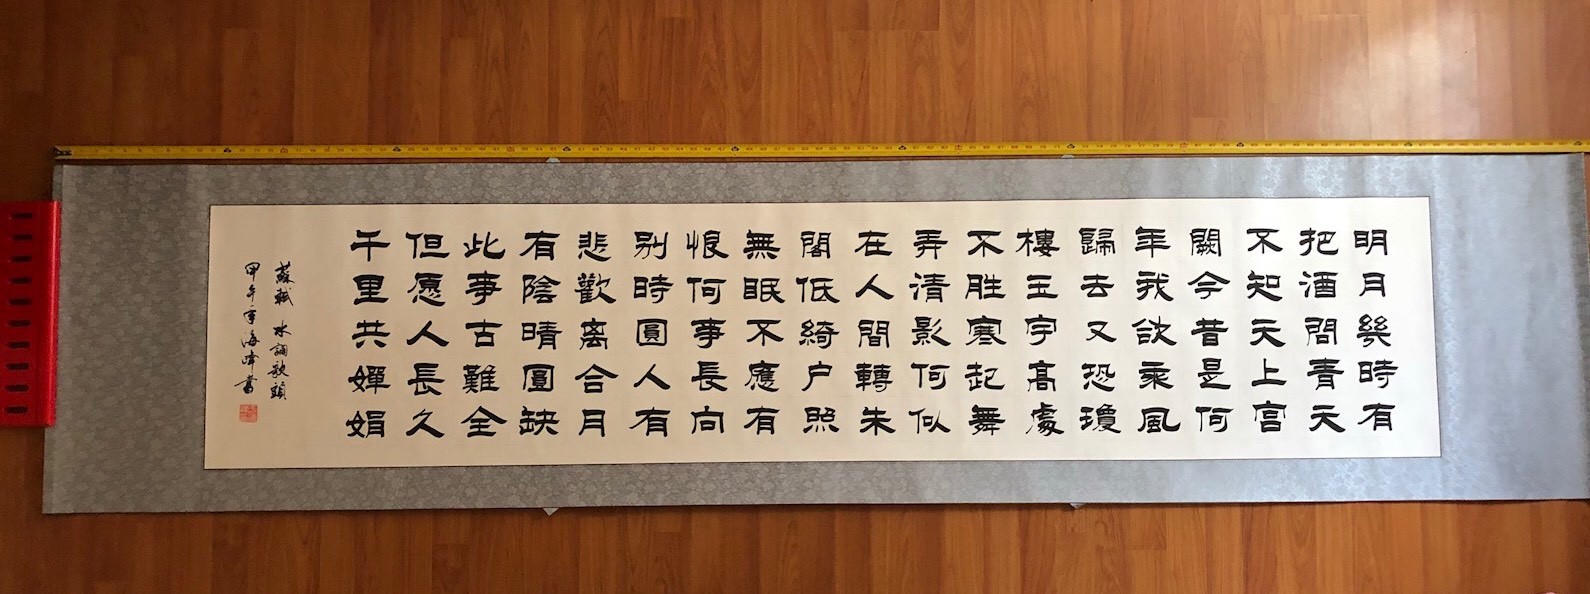 明月幾時有
把酒問青天
不知天上宫
闕今昔是何
年我欲乘風
歸去又恐瓊
樓玉宇高處
不胜寒起舞
弄清影何似
在人間轉朱
閣低綺户照
無眠不應有
恨何事長向
别時圓人有
悲歡离合月
有陰晴圓缺
此事古難全
但愿人長久
千里共嬋娟
蘇軾 水調歌頭
甲午海峰書